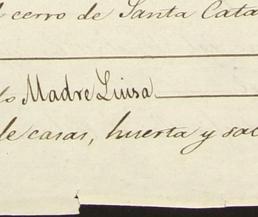 l cerro de Santa Cata
do Madre Luisa
de casas, huerta y sal